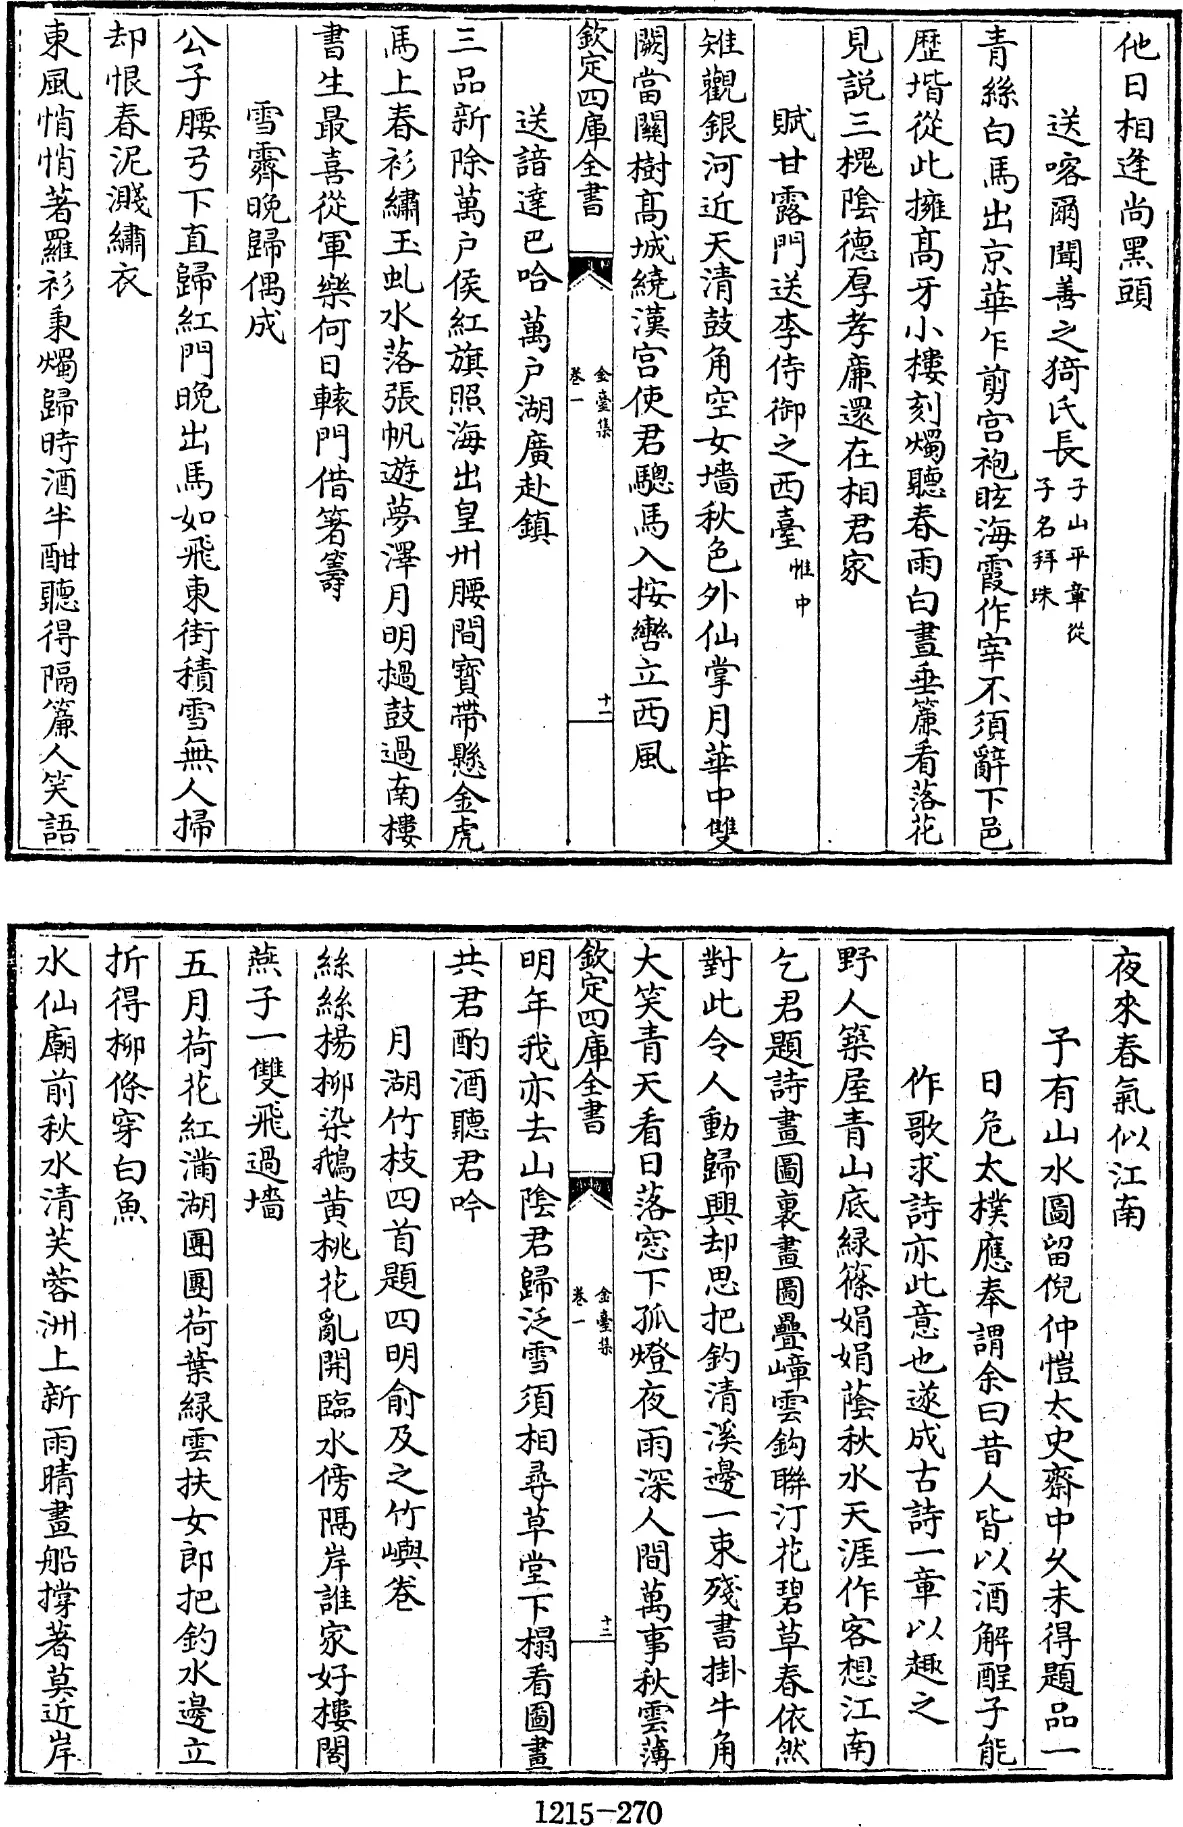 他日相逢尚黑頭
送喀爾聞善之猗氏長子山平章從子名拜珠
青絲白馬出京華乍剪宫袍眩海霞作宰不須辭下邑
歷堦從此擁高牙小樓刻燭聽春雨白晝垂簾看落花
見説三槐陰德厚孝廉還在相君家
賦甘露門送李侍御之西臺惟中
雉觀銀河近天清鼓角空女墻秋色外仙掌月華中雙
闕當關樹髙城繞漢宫使君驄馬入按轡立西風
欽定四庫全書
金臺集
卷一
十一
送諳達巴哈萬户湖廣赴鎮
三品新除萬户侯紅旗照海出皇州腰間寳帶懸金虎
馬上春衫繡玉虬水落張帆遊夢澤月明撾鼓過南樓
書生最喜從軍樂何日轅門借箸籌
雪霽晚歸偶成
公子腰弓下直歸紅門晚出馬如飛東街積雪無人掃
却恨春泥濺繡衣
東風悄悄著羅衫秉燭歸時酒半酣聽得隔簾人笑語
夜來春氣似江南
予有山水圖留倪仲愷太史齋中久未得題品一
日危太樸應奉謂余曰昔人皆以酒解酲子能
作歌求詩亦此意也遂成古詩一章以趣之
野人築屋青山底緑篠娟娟蔭秋水天涯作客想江南
乞君題詩畫圖裏畫圖疊嶂雲鈎聯汀花碧草春依然
對此令人動歸興却思把釣清溪邊一束殘書掛牛角
大笑青天看日落窓下孤燈夜雨深人間萬事秋雲薄
欽定四庫全書
金臺集
卷一
十二
明年我亦去山陰君歸泛雪須相尋草堂下榻看圖畫
共君酌酒聽君吟
月湖竹枝四首題四明俞及之竹嶼卷
絲絲楊柳染鵝黄桃花亂開臨水傍隔岸誰家好樓閣
燕子一雙飛過墻
五月荷花紅滿湖團團荷葉緑雲扶女郎把釣水邊立
折得柳條穿白魚
水仙廟前秋水清芙蓉洲上新雨晴畫船撑著莫近岸
1215-270